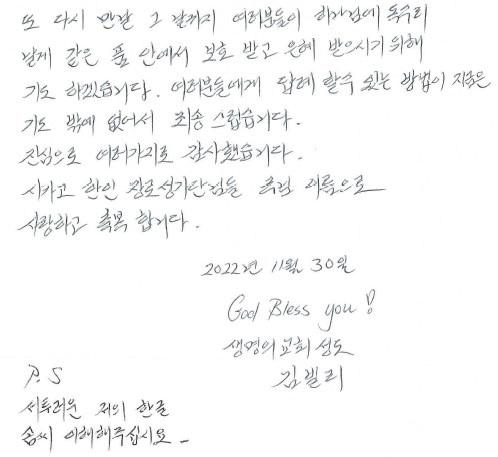 또 다시 만날 그 날까지 여러분들이 하나님에 독수리
날게 같은 품 안에서 보호 받고 은혜 받으시기 위해
기도 하겠습니다. 여러분들에게 답례 할수 있는 방법이 지금은
기도 밖에 없어서 죄송 스럽습니다.
진심으로 여러가지로 감사했습니다.
시카고 한인 장로성가단님들 주님 이름으로
사랑하고 축복 합니다.
2022년 11월 30일
God Bless you!
생명의 교회 성도
김빌리
P.S
서투러운 저의 한글
솜씨 이해해주십시요 -